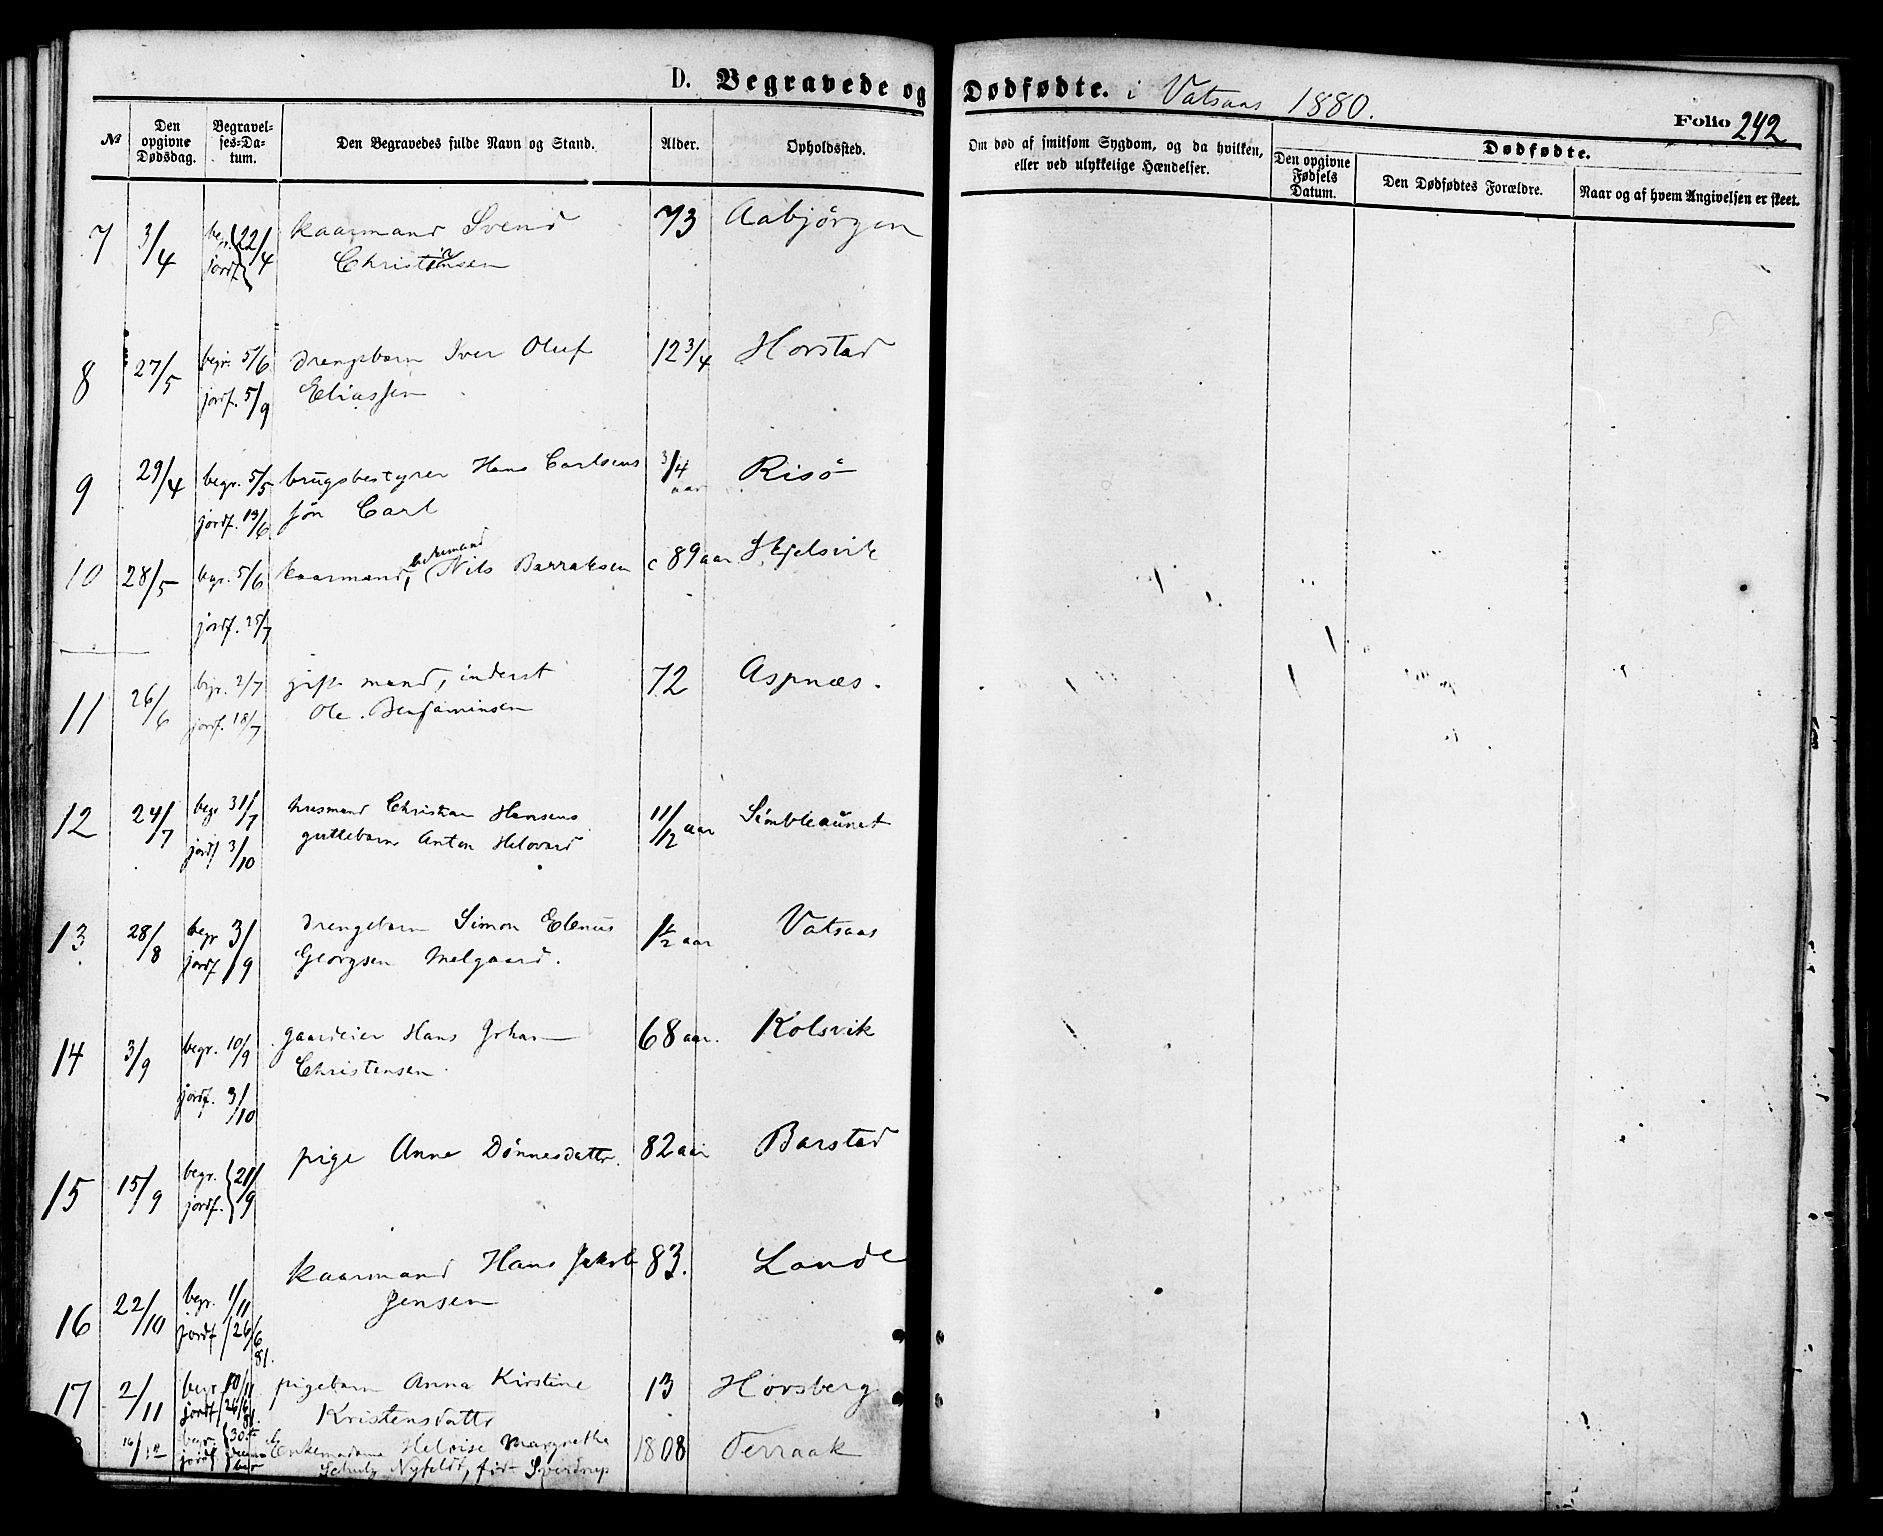 D. Begravede og Dødfødte. i Vatsaas 1880.
Folio 242
№
Den opgivne Dødsdag.
Begravelses-Datum.
Den Begravedes fulde Navn og Stand.
Alder.
Opholdssted.
Om død af smitsom Sygdom, og da hvilken, eller ved ulykkelige Hændelser.
Dødfødte.
Den opgivne Fødsels Datum.
Den Dødfødtes Forældre.
Naar og af hvem Angivelsen er skeet.
7 3/4 begr. jordf. 22/4 kaarmand Svend 73 Aabjørgen
Christensen
8 27/5 begr. 5/6 drengebarn Iver Oluf 12 3/4 Horstad
jordf. 5/9 Eliassen
9 29/4 begr. 5/5 brugsbestyrer Hans Carlsens 3/4 aar Risö
jordf. 13/6 søn Carl
10 28/5 begr. 5/6 kaarmand, Nils Barraksen c 89 aar Skjelsvik
jordf. 25/7
11 26/6 begr. 2/7 gift mand, inderst 72 Aspnæs.
jordf. 18/7 Ole Benjaminsen
12 24/7 begr 31/7 husmand Christian Hansens 11/12 aar Simbleaunet
jordf 3/10 guttebarn Anton Helovard
13 28/8 begr jordf 3/9 drengebarn Simon Elenus 1 1/2 aar Vatsaas
Georgsen Melgaard.
14 3/9 begr. 10/9 gaardeier Hans Johan 68 aar. Kolsvik
jordf. 3/10 Christensen
15 15/9 begr. jordf. 21/9 pige Anne Dønnesdattr. 82 aar Barstad
16 22/10 begr. 1/11 kaarmand Hans Jakob 83. Lande
jordf 26/6 81. Jensen
17 2/11 begr 10/11 pigebarn Anna Kirstine 13 Horsberg
jordf 26/6 81. Kristensdattr
16/12 begr. jordf 30te Enkemadame Heloise Margrethe 1808 Terraak
Schulz Nyfeldt, født Sverdrup